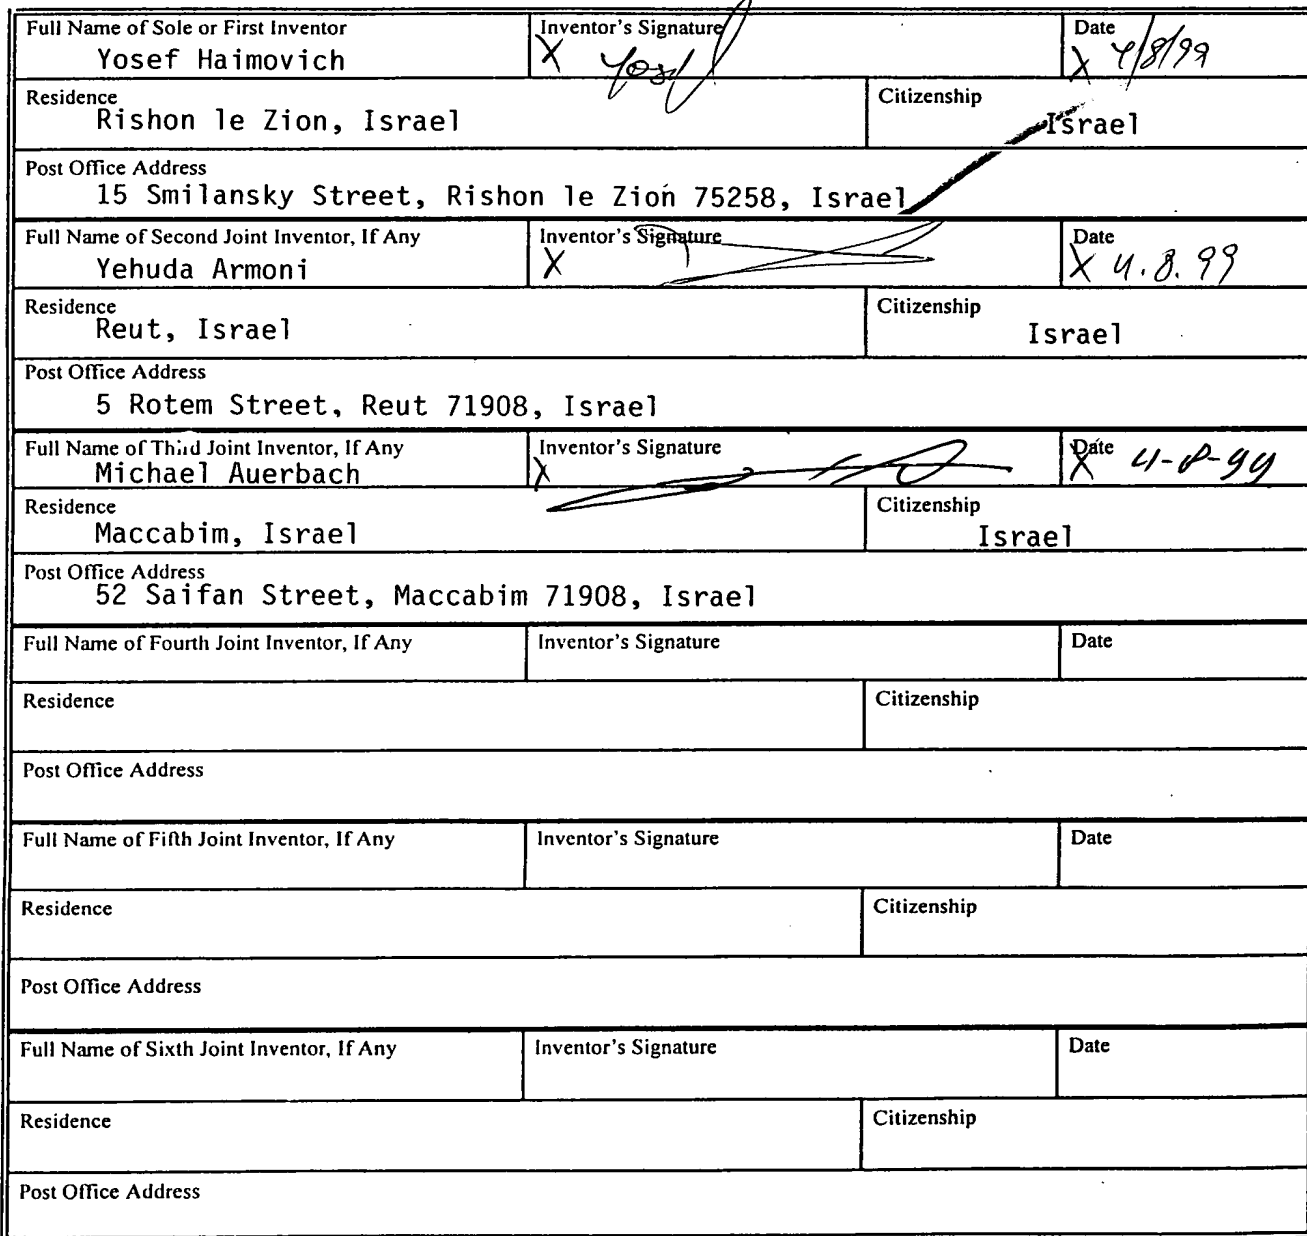 Full Name of Sole or First Inventor Inventor's Signature Date
Yosef Haimovich X Yosef X 4/8/99
Residence Citizenship
Rishon le Zion, Israel Israel
Post Office Address
15 Smilansky Street, Rishon le Zion 75258, Israel
Full Name of Second Joint Inventor, If Any Inventor's Signature Date
Yehuda Armoni X X 4.8.99
Residence Citizenship
Reut, Israel Israel
Post Office Address
5 Rotem Street, Reut 71908, Israel
Full Name of Third Joint Inventor, If Any Inventor's Signature Date
Michael Auerbach X X 4-8-99
Residence Citizenship
Maccabim, Israel Israel
Post Office Address
52 Saifan Street, Maccabim 71908, Israel
Full Name of Fourth Joint Inventor, If Any Inventor's Signature Date
Residence Citizenship
Post Office Address
Full Name of Fifth Joint Inventor, If Any Inventor's Signature Date
Residence Citizenship
Post Office Address
Full Name of Sixth Joint Inventor, If Any Inventor's Signature Date
Residence Citizenship
Post Office Address